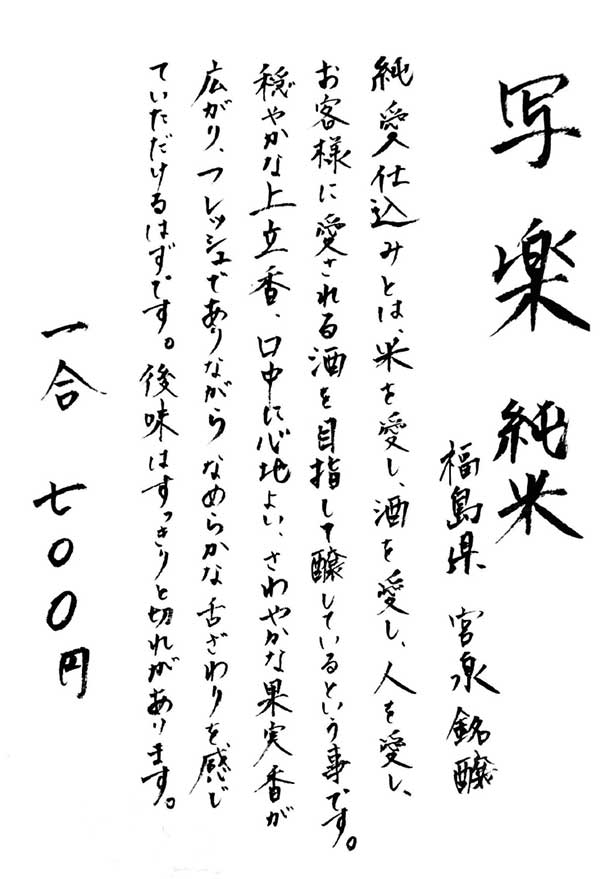 写楽 純米
福島県 宮泉銘醸
純愛仕込みとは、米を愛し、酒を愛し、人を愛し、
お客様に愛される酒を目指して醸しているという事です。
穏やかな上立香、口中に心地よい、さわやかな果実香が
広がり、フレッシュでありながらなめらかな舌ざわりを感じ
ていただけるはずです。後味はすっきりと切れがあります。
一合 七〇〇円